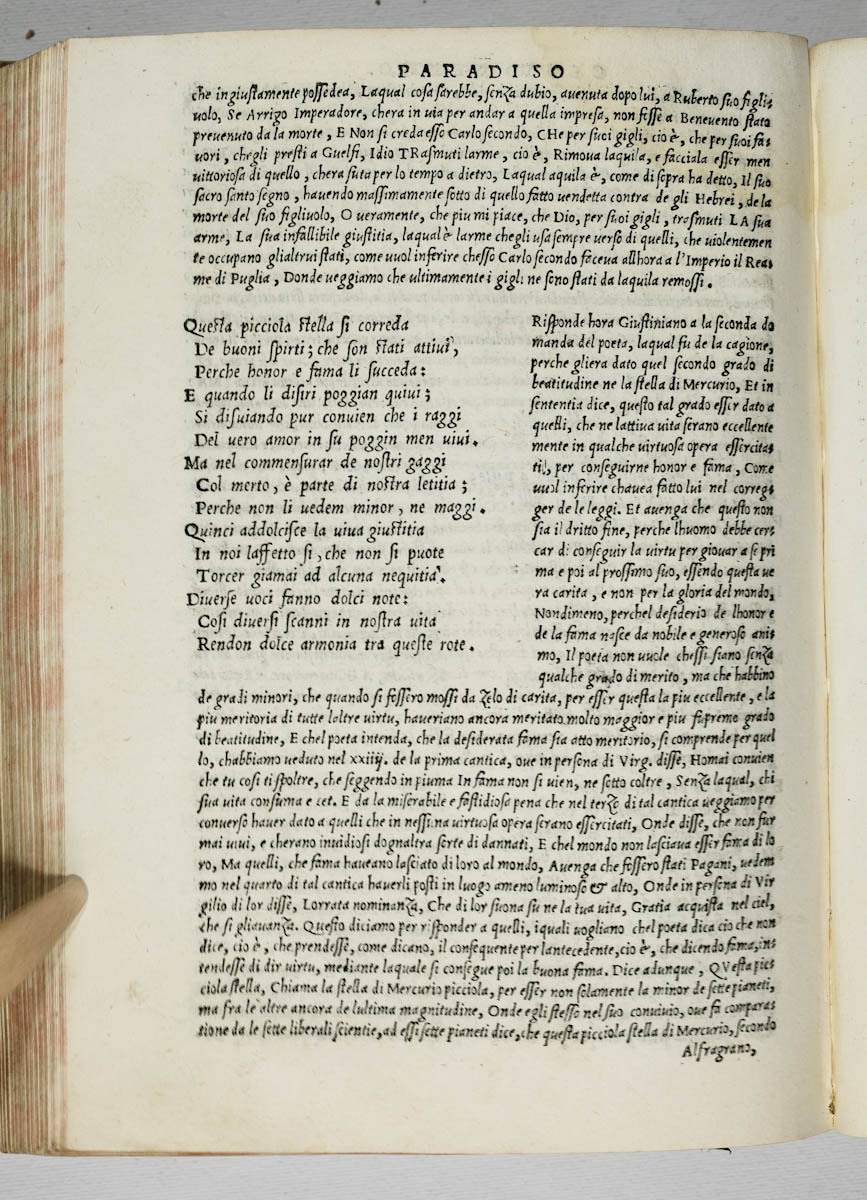 PARADISO
che ingiustamente possedea, Laqual cosa sarebbe, senza dubio, auenuta dopo lui, a Ruberto suo figli-
uolo, Se Arrigo Imperadore, chera in uia per andar a quella impresa, non fesse a Beneuento stato
preuenuto da la morte, E Non si creda esso Carlo secondo, CHe per suoi gigli, cio è, che per suoi fa-
uori, chegli presti a Guelfi, Idio TRasmuti larme, cio è, Rimoua laquila, e facciala esser men
uittoriosa di quello, chera suta per lo tempo a dietro, Laqual aquila è, come di sopra ha detto, Il suo
sacro santo segno, hauendo massimamente sotto di quello fatto uendetta contra de gli Hebrei, de la
morte del suo figliuolo, O ueramente, che piu mi piace, che Dio, per suoi gigli, trasmuti LA sua
arme, La sua infallibile giustitia, laqual è larme chegli usa sempre uerso di quelli, che uiolentemen
te occupano glialtrui stati, come uuol inferire chesso Carlo secondo faceua allhora a l'Imperio il Rea-
me di Puglia, Donde ueggiamo che ultimamente i gigli ne sono stati da laquila remossi.
Questa picciola stella si correda
De buoni spirti; che son stati attiui,
Perche honor e fama li succeda:
E quando li disiri poggian quiui;
Si disuiando pur conuien che i raggi
Del uero amor in su poggin men uiui.
Ma nel commensurar de nostri gaggi
Col merto, è parte di nostra letitia;
Perche non li uedem minor, ne maggi.
Quinci addolcisce la uiua giustitia
In noi laffetto si, che non si puote
Torcer giamai ad alcuna nequitia.
Diuerse uoci fanno dolci note:
Cosi diuersi scanni in nostra uita
Rendon dolce armonia tra queste rote.
Risponde hora Giustiniano a la seconda do
manda del poeta, laqual fu de la cagione,
perche gliera dato quel secondo grado di
beatitudine ne la stella di Mercurio, Et in
sententia dice, questo tal grado esser dato a
quelli, che ne lattiua uita serano eccellente
mente in qualche uirtuosa opera essercita-
ti, per conseguirne honor e fama, Come
uuol inferire chauea fatto lui nel correg-
ger de le leggi. Et auenga che questo non
sia il dritto fine, perche lhuomo debbe cer-
car di conseguir la uirtu per giouar a se pri
ma e poi al prossimo suo, essendo questa ue
ra carita, e non per la gloria del mondo,
Nondimeno, perchel desiderio de lhonor e
de la fama nasce da nobile e generoso ani-
mo, Il poeta non uuole chessi siano senza
qualche grado di merito, ma che habbino
de gradi minori, che quando si fossero mossi da zelo di carita, per esser questa la piu eccellente, e la
piu meritoria di tutte laltre uirtu, haueriano ancora meritato molto maggior e piu supremo grado
di beatitudine, E chel poeta intenda, che la desiderata fama sia atto meritorio, si comprende per quel
lo, chabbiamo ueduto nel xxiiij. de la prima cantica, oue in persona di Virg. disse, Homai conuien
che tu cosi ti spoltre, che seggendo in piuma In fama non si uien, ne sotto coltre, Senza laqual, chi
sua uita consuma e cet. E da la miserabile e fastidiosa pena che nel terzo di tal cantica ueggiamo per
conuerso hauer dato a quelli che in nessuna uirtuosa opera serano essercitati, Onde disse, che non fur
mai uiui, e cherano inuidiosi dognaltra sorte di dannati, E chel mondo non lasciaua esser fama di lo
ro, Ma quelli, che fama haueano lasciato di loro al mondo, Auenga che fossero stati Pagani, uedem
mo nel quarto di tal cantica hauerli posti in luogo ameno luminoso & alto, Onde in persona di Vir
gilio di lor disse, Lorrata nominanza, Che di lor suona su ne la tua uita, Gratia acquista nel ciel,
che si gliauanza. Questo diciamo per risponder a quelli, iquali uogliano chel poeta dica cio che non
dice, cio è, che prendesse, come dicano, il consequente per lantecedente, cio è, che dicendo fama, in-
tendesse di dir uirtu, mediante laquale si consegue poi la buona fama. Dice adunque, QVesta pic-
ciola stella, Chiama la stella di Mercurio picciola, per esser non solamente la minor de sette pianeti,
ma fra le altre ancora de lultima magnitudine, Onde egli stesso nel suo conuiuio, oue fa compara-
tione da le sette liberali scientie, ad essi sette pianeti dice, che questa picciola stella di Mercurio, secondo
Alfragrano,